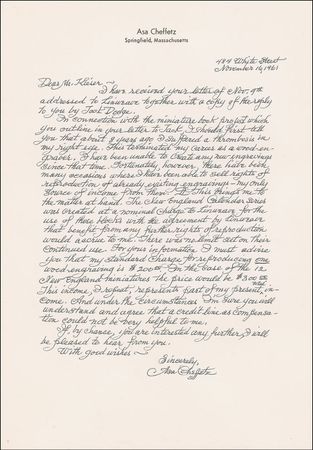 Asa Cheffetz
Springfield, Massachusetts
484 White Street
November 16, 1961
Dear Mr. Kleiser —
I have received your letter of Nov. 9th
addressed to Linweave together with a copy of the reply
to you by Jack Dodge.
In connection with the miniature book project which
you outline in your letter to Jack, I should first tell
you that about 2 years ago I suffered a thrombosis in
my right eye. This terminated my career as a wood-en-
graver. I have been unable to create any new engravings
since that time. Fortunately, however, there have been
many occasions where I have been able to sell rights of
reproduction of already existing engravings — my only
source of income from them. This brings me to
the matter at hand. The New England Calendar series
was created at a nominal charge to Linweave for the
use of those blocks with the agreement by Linweave
that benefit from any further rights of reproduction
would accrue to me. There was no limit set on their
continued use. For your information I must advise
you that my standard charge for reproducing one
wood engraving is On the basis of the 12
New England miniatures the price would be
This income, I repeat, represents part of my present in-
come. And under the circumstances I'm sure you will
understand and agree that a credit line as compensa-
tion could not be very helpful to me.
If by chance, you are interested any further, I will
be pleased to hear from you.
With good wishes —
Sincerely,
Asa Cheffetz